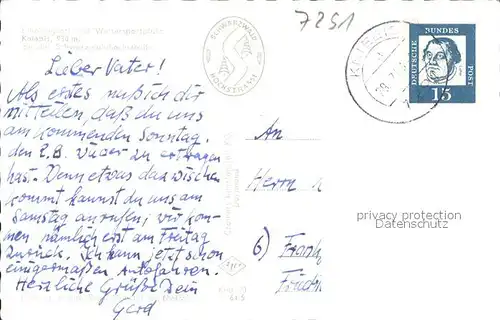 7291
Kniebis, 970 m,
SCHWARZWALD
HOCHSTRASSE
DEUTSCHE BUNDES POST
15
Lieber Vater!
Als erstes muß ich dir
mitteilen, daß du uns
am kommenden Sonntag,
den 2.8. wieder zu ertragen
hast. Wenn etwas dazwischen
kommt kannst du uns am
Samstag anrufen, wir kom-
men nämlich erst am Freitag
zurück. Ich kann jetzt schon
einigermaßen Autofahren.
Herzliche Grüße Dein
Gerd
An
Herrn
privacy protection
6) Frank
Friedr